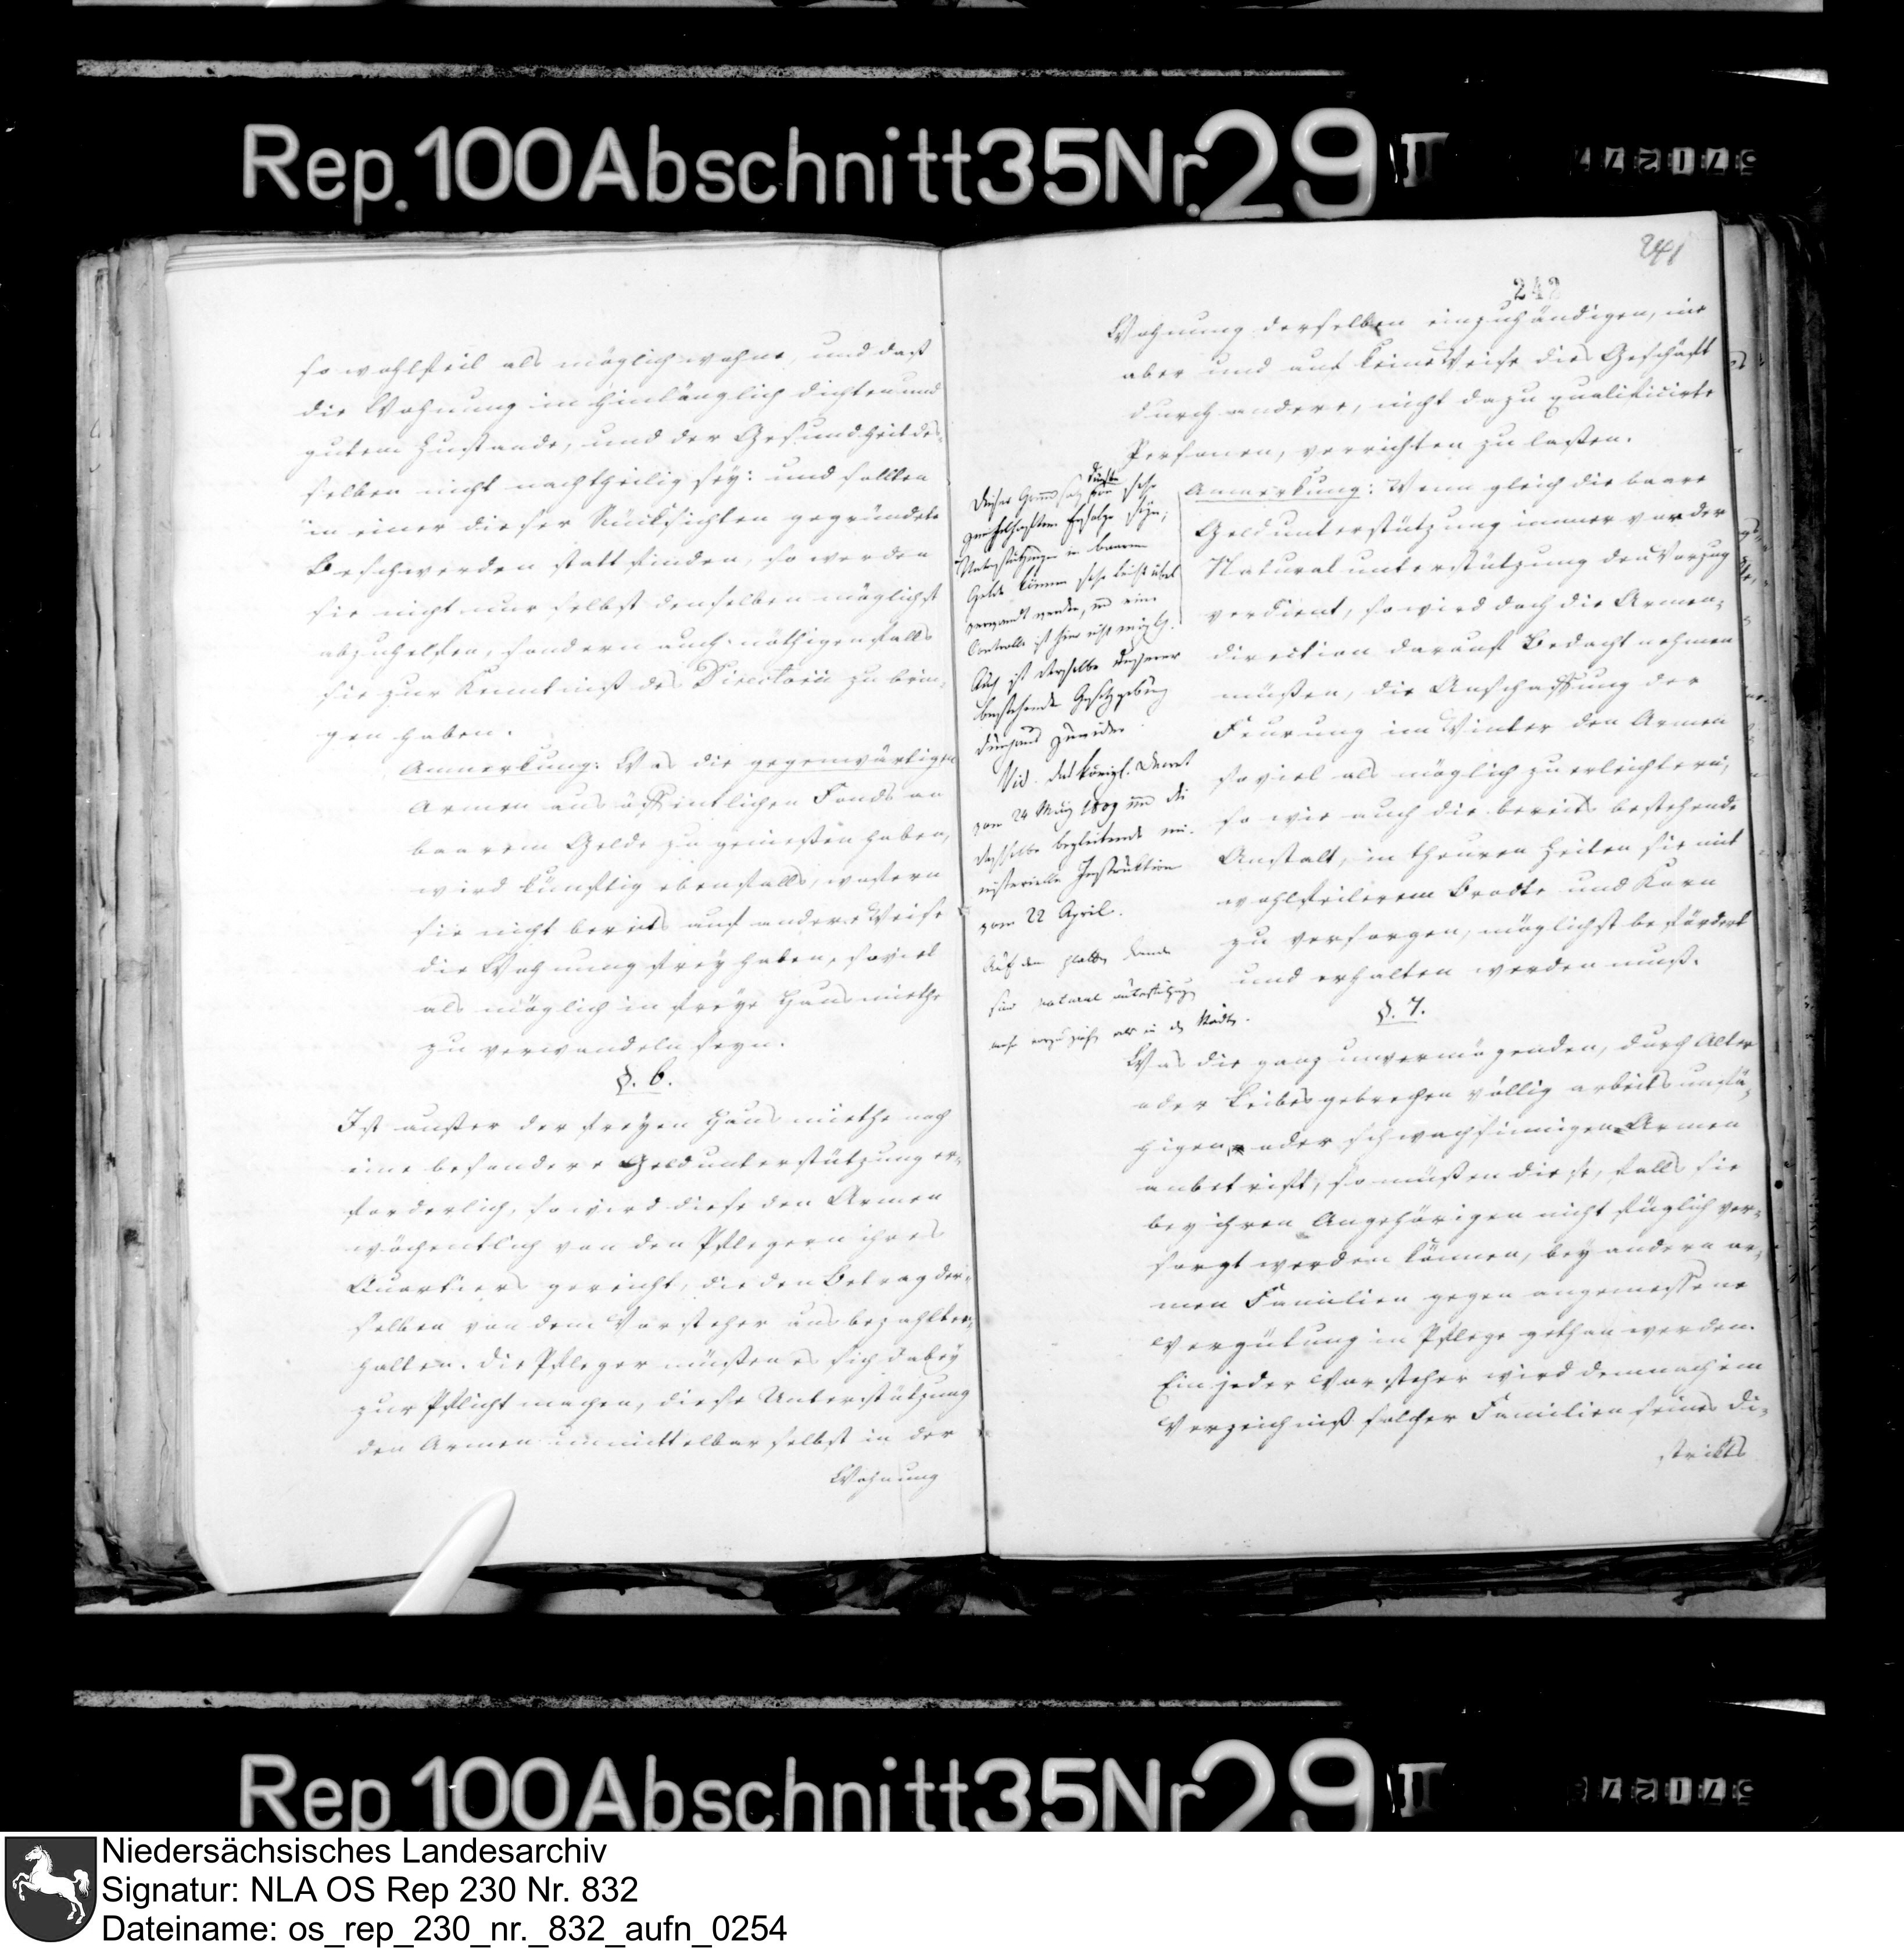 Rep. 100 Abschnitt 35 Nr. 29 II
so wohlfeil als möglich wohne, und daß
die Wohnung in hinlänglich dichten und
gutem Zustande, und der Gesundheit des-
selben nicht nachtheilig sey: und sollten
in einer dieser Rücksichten gegründete
Beschwerden statt finden, so werden
sie nicht nur selbst denselben möglichst
abzuhelfen, sondern auch nöthigenfalls
sie zur Kenntniß des Directorii zu brin-
gen haben.
Anmerkung: Was die gegenwärtigen
Armen aus öffentlichen Fonds an
baarem Gelde zu genießen haben,
wird künftig ebenfalls, wofern
sie nicht bereits auf andere Weise
die Wohnung frey haben, soviel
als möglich in freye Hausmiethe
zu verwandeln seyn.
§. 6.
Ist außer der freyen Hausmiethe noch
eine besondere Geldunterstützung er-
forderlich, so wird diese den Armen
wöchentlich von den Pflegern ihres
Quartiers gereicht, die den Betrag der-
selben von dem Vorsteher ausbezahlt er-
halten. Die Pfleger müßen es sich dabey
zur Pflicht machen, diese Unterstützung
den Armen unmittelbar selbst in der
Wohnung
241
242
Wohnung derselben einzuhändigen, nie
aber und auf keine Weise dies Geschäft
durch andere, nicht dazu qualificirte
Personen, verrichten zu laßen.
Anmerkung: Wenn gleich die baare
Geldunterstützung immer vor der
Naturalunterstützung den Vorzug
verdient, so wird doch die Armen-
direction darauf Bedacht nehmen
müßen, die Anschaffung der
Feurung im Winter den Armen
soviel als möglich zu erleichtern,
so wie auch die bereits bestehende
Anstalt, in theuren Zeiten sie mit
wohlfeilerem Brodte und Korn
zu versorgen, möglichst befördert
und erhalten werden muß.
Dieser Grundsatz dürfte sehr
zweifelhaften Erfolgs seyn;
Unterstützungen in baarem
Gelde können sehr leicht übel
verwandt werden, und eine
Controlle ist hier nicht möglich.
Auch ist derselbe unserer
bestehenden Gesetzgebung
durchaus zuwider.
Vid. das königl. Decret
vom 24 März 1809 und die
dasselbe begleitende mi-
nisterielle Instruktion
vom 22 April.
Auf dem platten Lande
sind natural unterstützung
mehr vorzuziehen als in den Städten.
§. 7.
Was die ganz unvermögenden, durch Alter
oder Leibesgebrechen völlig arbeitsunfä-
higen, oder schwachsinnigen Armen
anbetrift, so müßen diese, falls sie
bey ihren Angehörigen nicht füglich ver-
sorgt werden können, bey andern ar-
men Familien gegen angemessene
Vergütung in Pflege gethan werden.
Ein jeder Vorsteher wird demnach ein
Verzeichniß solcher Familien seines Di-
strikts
Rep. 100 Abschnitt 35 Nr. 29 II
Niedersächsisches Landesarchiv
Signatur: NLA OS Rep 230 Nr. 832
Dateiname: os_rep_230_nr._832_aufn_0254